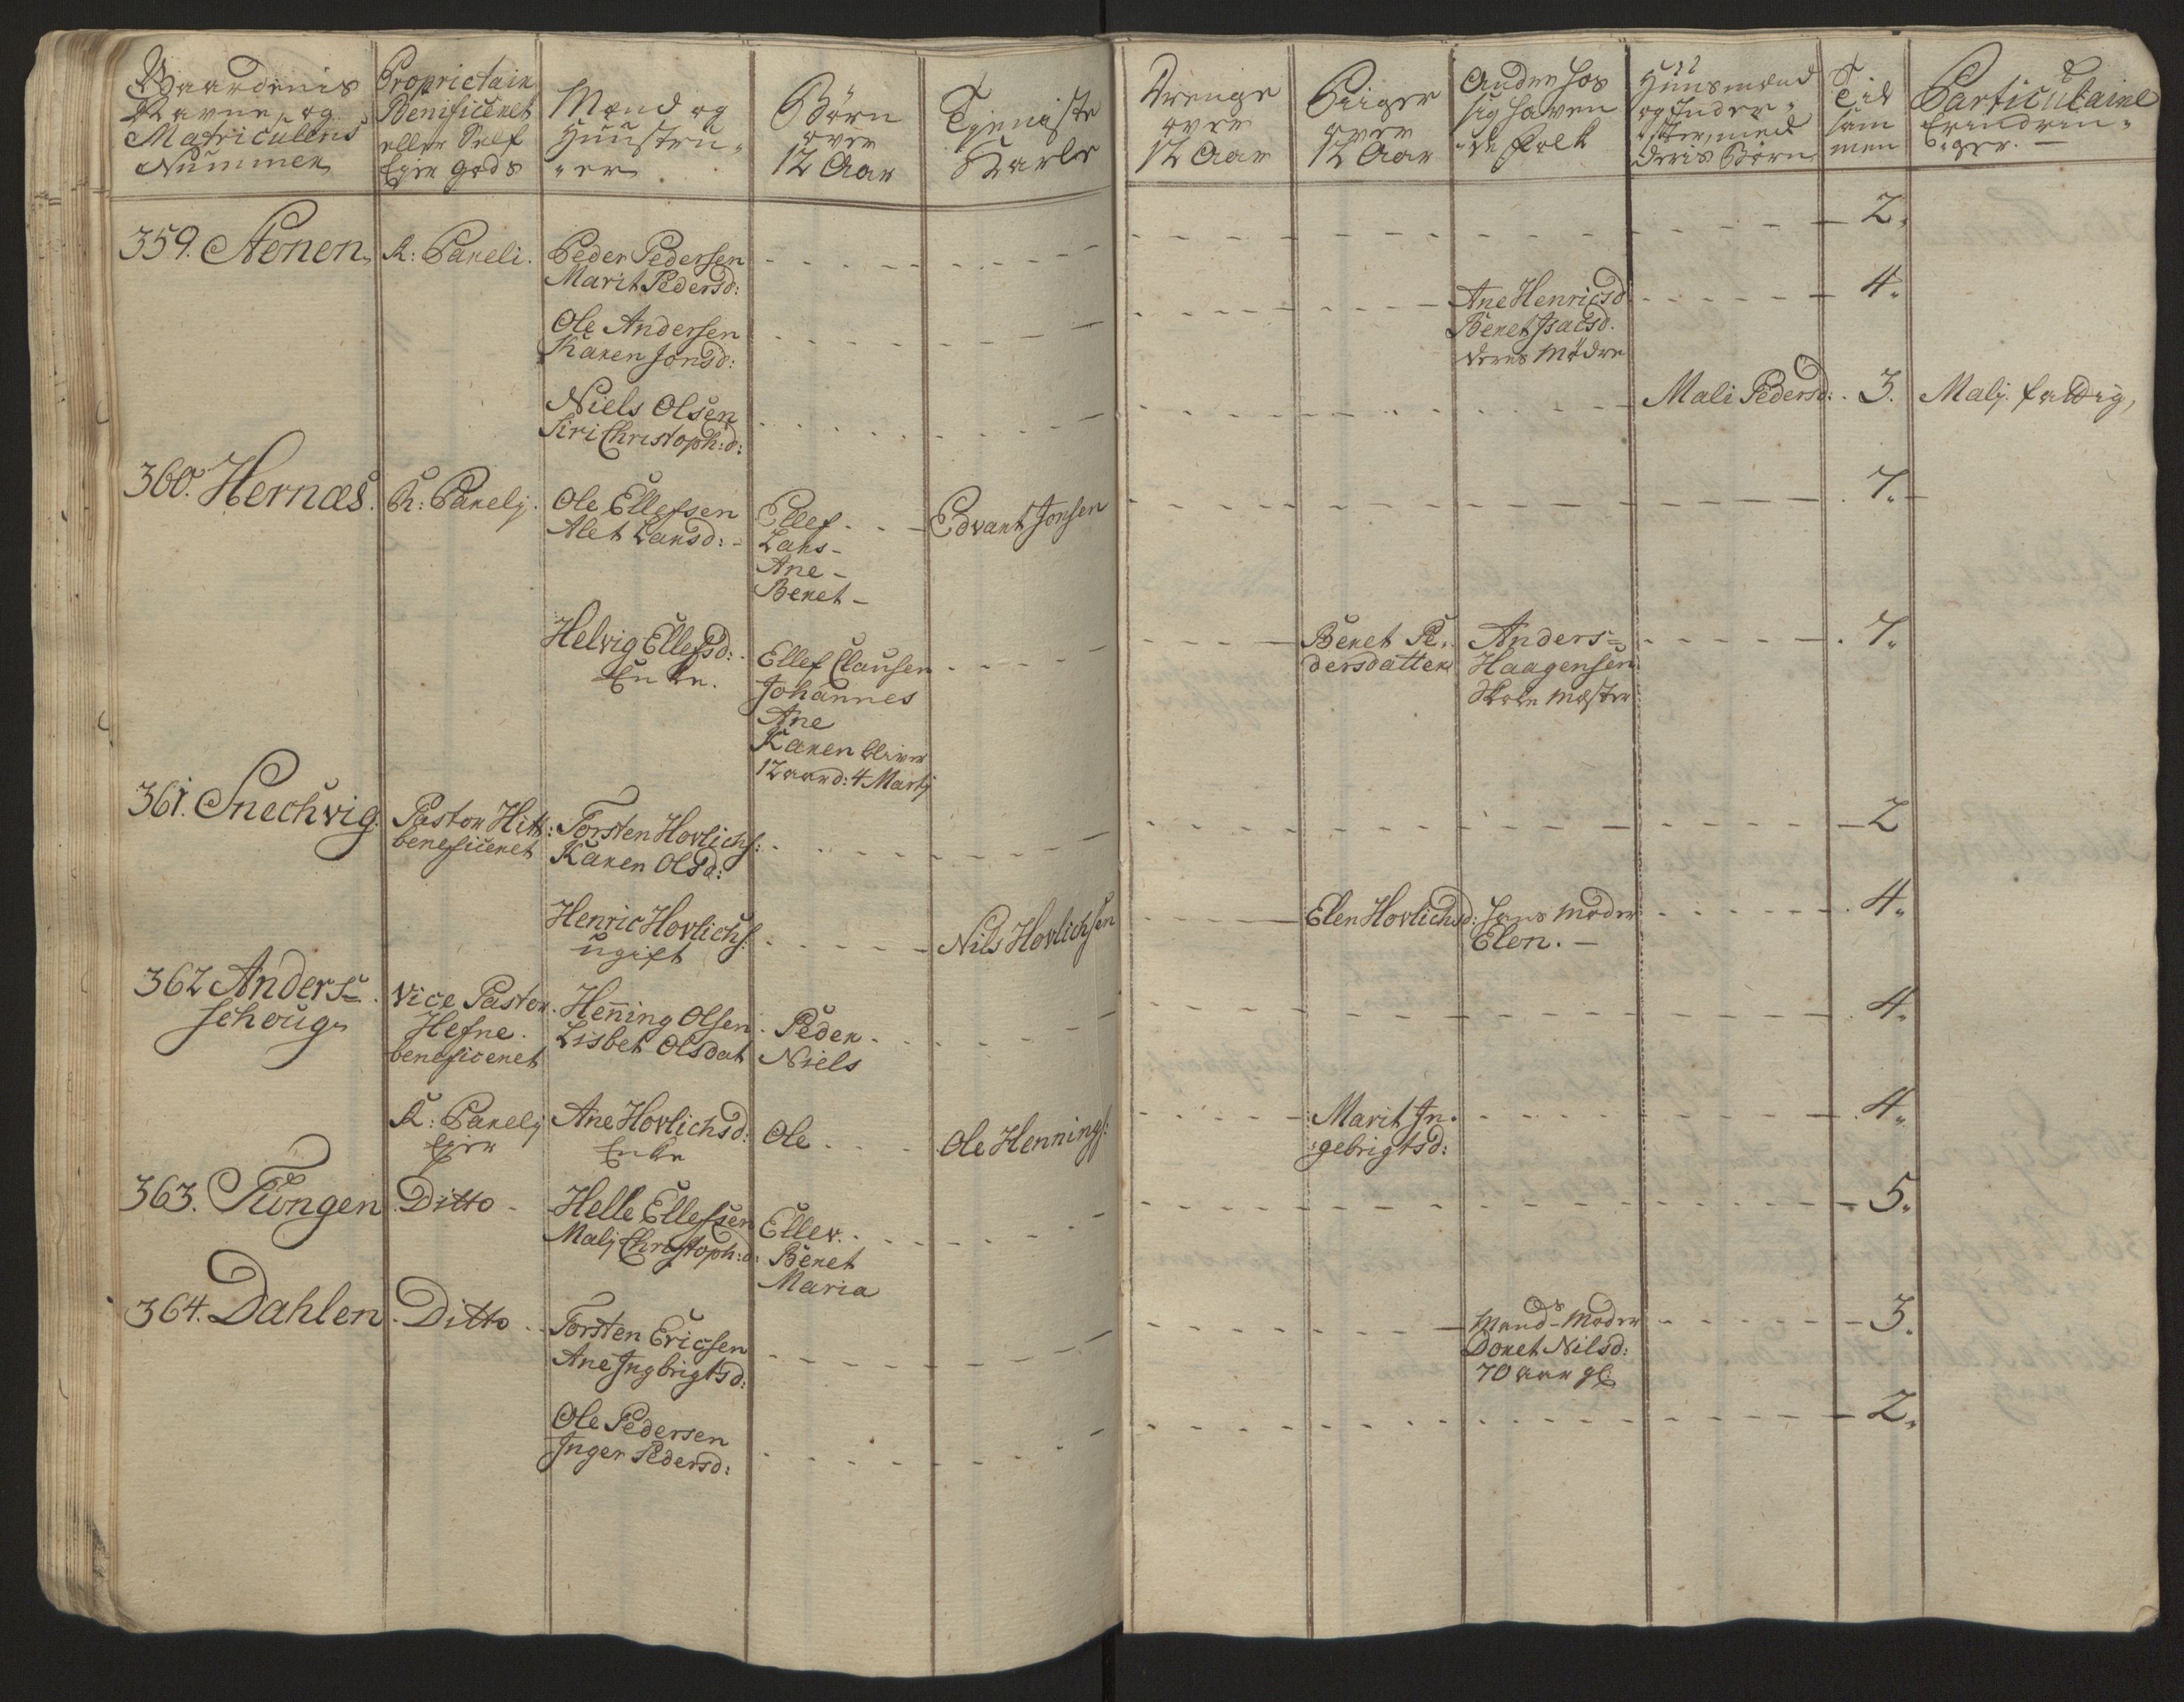 Gaardenis Navne, og Matriculens Nummer
Proprietair Benificeret eller Self Eÿer gods
Mænd og Hüüstrüer
Börn over 12 Aar
Tjeniste Karle
Drenge over 12 Aar
Piiger over 12 Aar
Andre hos sig havende folk
Hüüsmænd og Inderster, med deris Börn
Til sammen
Particulaire Erindringer.
359. Stenen, K: Pareli.
Peder Pedersen
Marit Pedersd:
2.
Ole Andersen
Karen Jonsd:
Ane Henricsd
Beret Isacsd.
deres Mödre
4.
Niels Olsen
Siri Christoph:d:
Mali Pedersd: 3.
Malj. fattig,
360. Hernæs. K: Parelj.
Ole Ellefsen
Alet Larsd:
Ellef
Lars
Ane
Beret
Edvart Jonsen
7.
Helvig Ellefsd:
Enke.
Ellef Clausen
Johannes
Ane
Karen bliver
12 aar d: 4 Martj
Beret Pe,
dersdatter
Anders
Haagensen
Skole Mæster
7.
361. Snechvig.
Pastor Hitt:
beneficeret
Torsten Hovlichs:
Karen Olsd:
2
Henric Hovlichs:
ugift
Nils Hovlichsen
Elen Hovlichsd:
hans Moder
Elen.
4.
362 Anders
schoug,
Vice Pastor
Hefne.
beneficeret
Hening Olsen
Lisbet Olsdat
Peder
Niels
4.
K: Parelj
Eier
Ane Hovlichsd:
Enke
Ole
Ole Hennings:
Marit In,
gebrigtsd:
4.
363. Tungen Ditto
Helle Ellefsen
Malj Christoph:d:
Ellev.
Beret
Maria
5.
364. Dahlen. Ditto
Torsten Ericsen
Ane Ingbrigtsd:
Mands Moder
Doret Nilsd:
70 aar gl:
3.
Ole Pedersen
Inger Pedersd:
2.